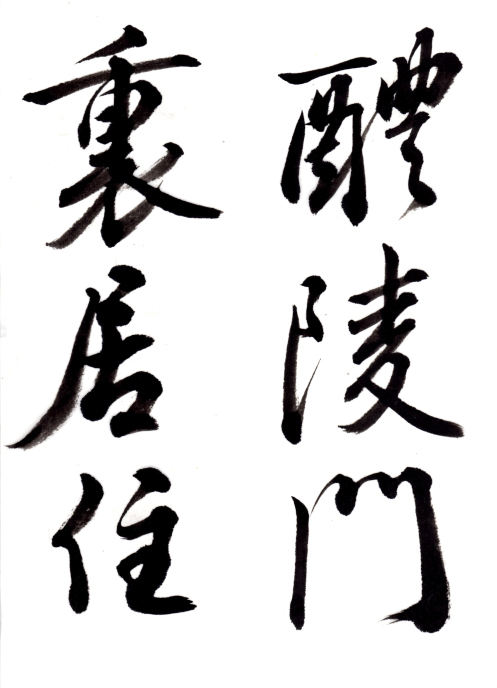 醴陵門
裏居住